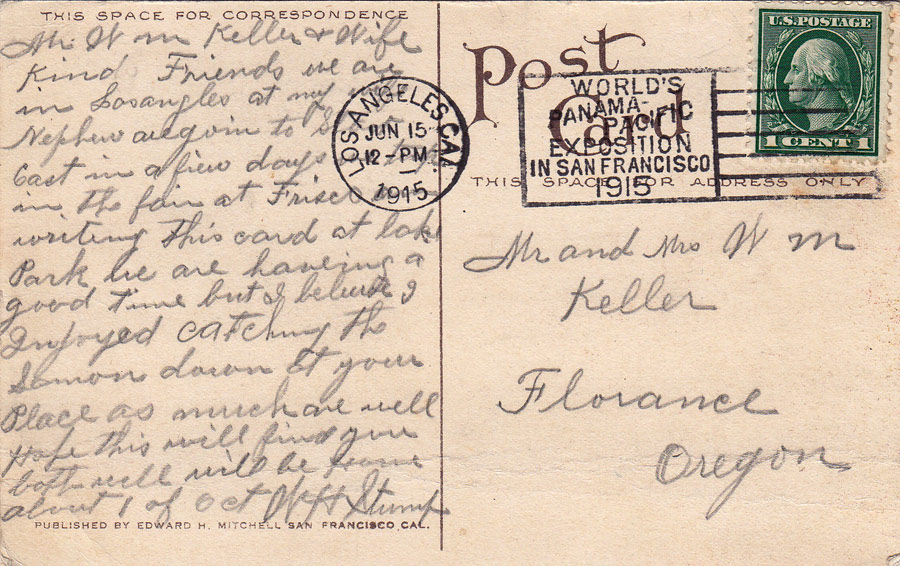 THIS SPACE FOR CORRESPONDENCE
Mr W m Keller & Wife
Kind Friends we are
in Losangles at my
Nephew are goin to
East in a few days
in the fair at Frisco
writing This card at lake
Park we are haveing a
good time but I beleive I
Injoyed catching the
Samon down at your
Place as much are well
Hope this will find you
both well will be home
about 1 of Oct W H Stump
PUBLISHED BY EDWARD H. MITCHELL SAN FRANCISCO, CAL.
LOS ANGELES, CAL.
JUN 15
12-PM
1915
Post Card
WORLD'S
PANAMA-
PACIFIC
EXPOSITION
IN SAN FRANCISCO
1915
U.S. POSTAGE
1 CENT 1
THIS SPACE FOR ADDRESS ONLY
Mr and Mrs W m
Keller
Florance
Oregon